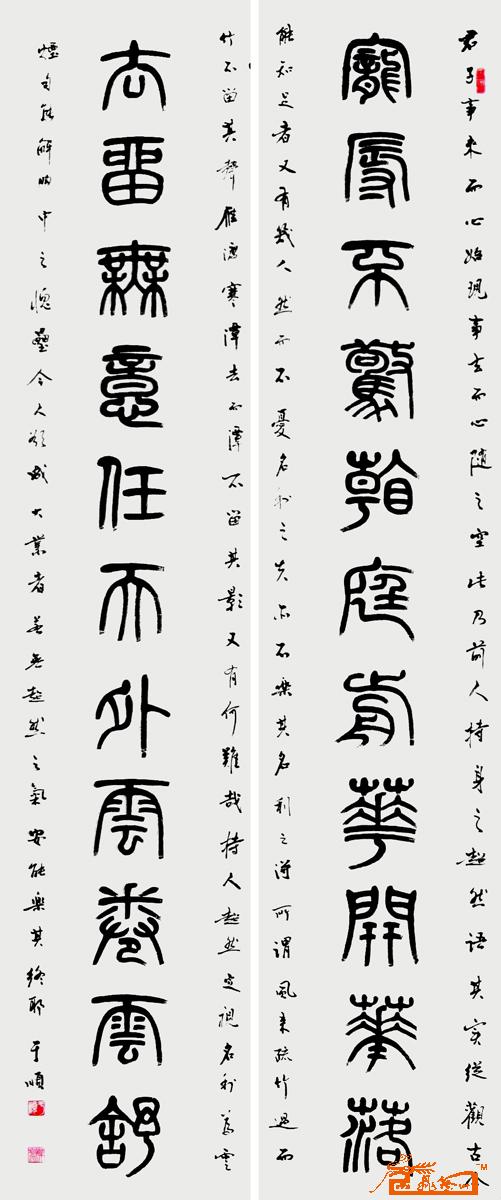 君子事來而心始現事去而心隨之空此乃前人持身之超然語其實從觀古今
寵辱不驚看庭前華開華落
能知足者又有幾人然而不憂名利之失亦不樂其名利之得所謂風來疏竹過而
竹不留其聲雁渡寒潭去而潭不留其影又有何難哉持人超然定視名利為雲
去留無意任天外雲卷雲舒
煙自能解胸中之塊壘今人欲成大業者若無超然之氣安能樂其終耶 于順